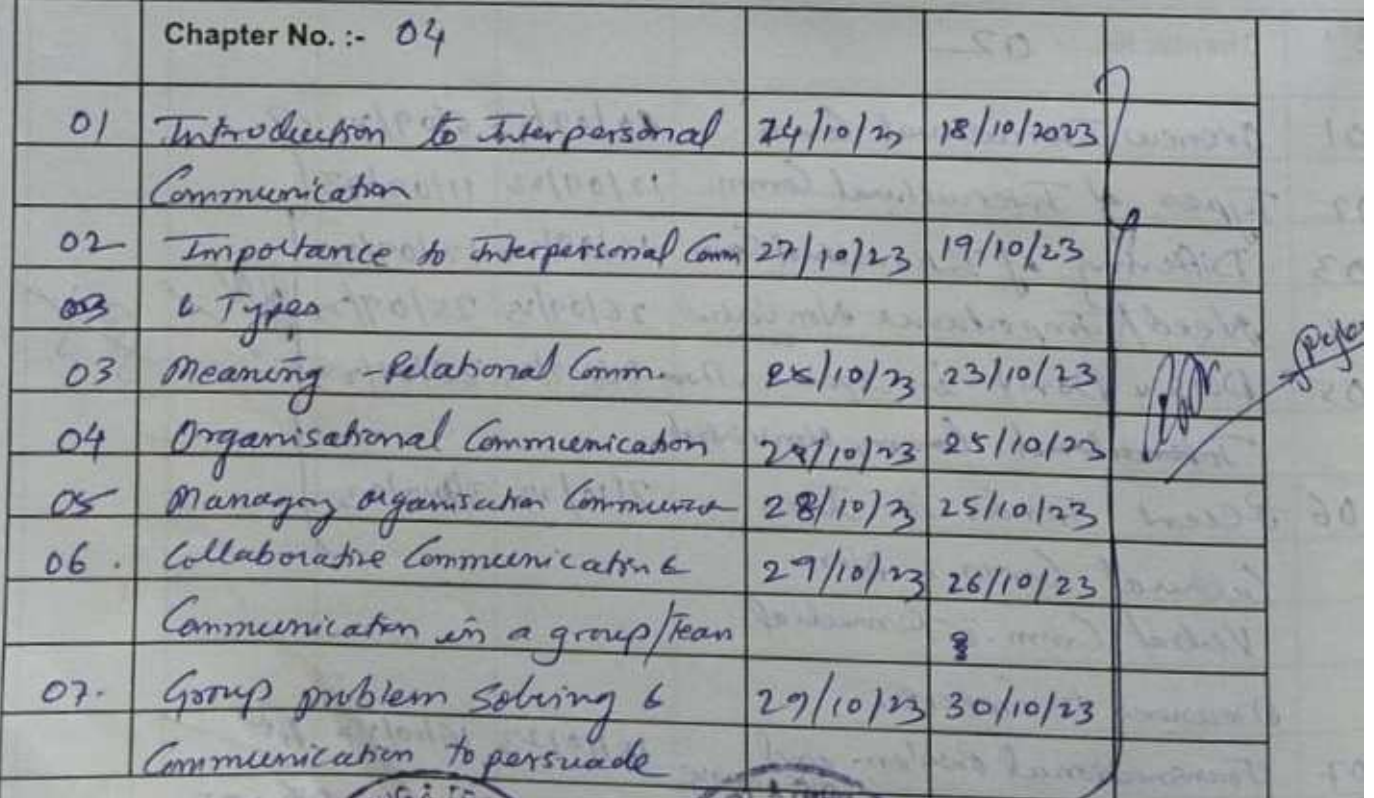 Chapter No. :- 04
01 Introduction to Interpersonal 24/10/23 18/10/2023
Communication
02 Importance to Interpersonal Comm 27/10/23 19/10/23
& Types
03 Meaning - Relational Comm. 10/23 23/10/23
04 Organisational Communication 10/23 25/10/23
05 Managing organisation 28/10/23 25/10/23
06. Collaborative Communication & 29/10/23 26/10/23
Communication in a group/Team
07. Group problem Solving & 29/10/23 30/10/23
Communication to persuade